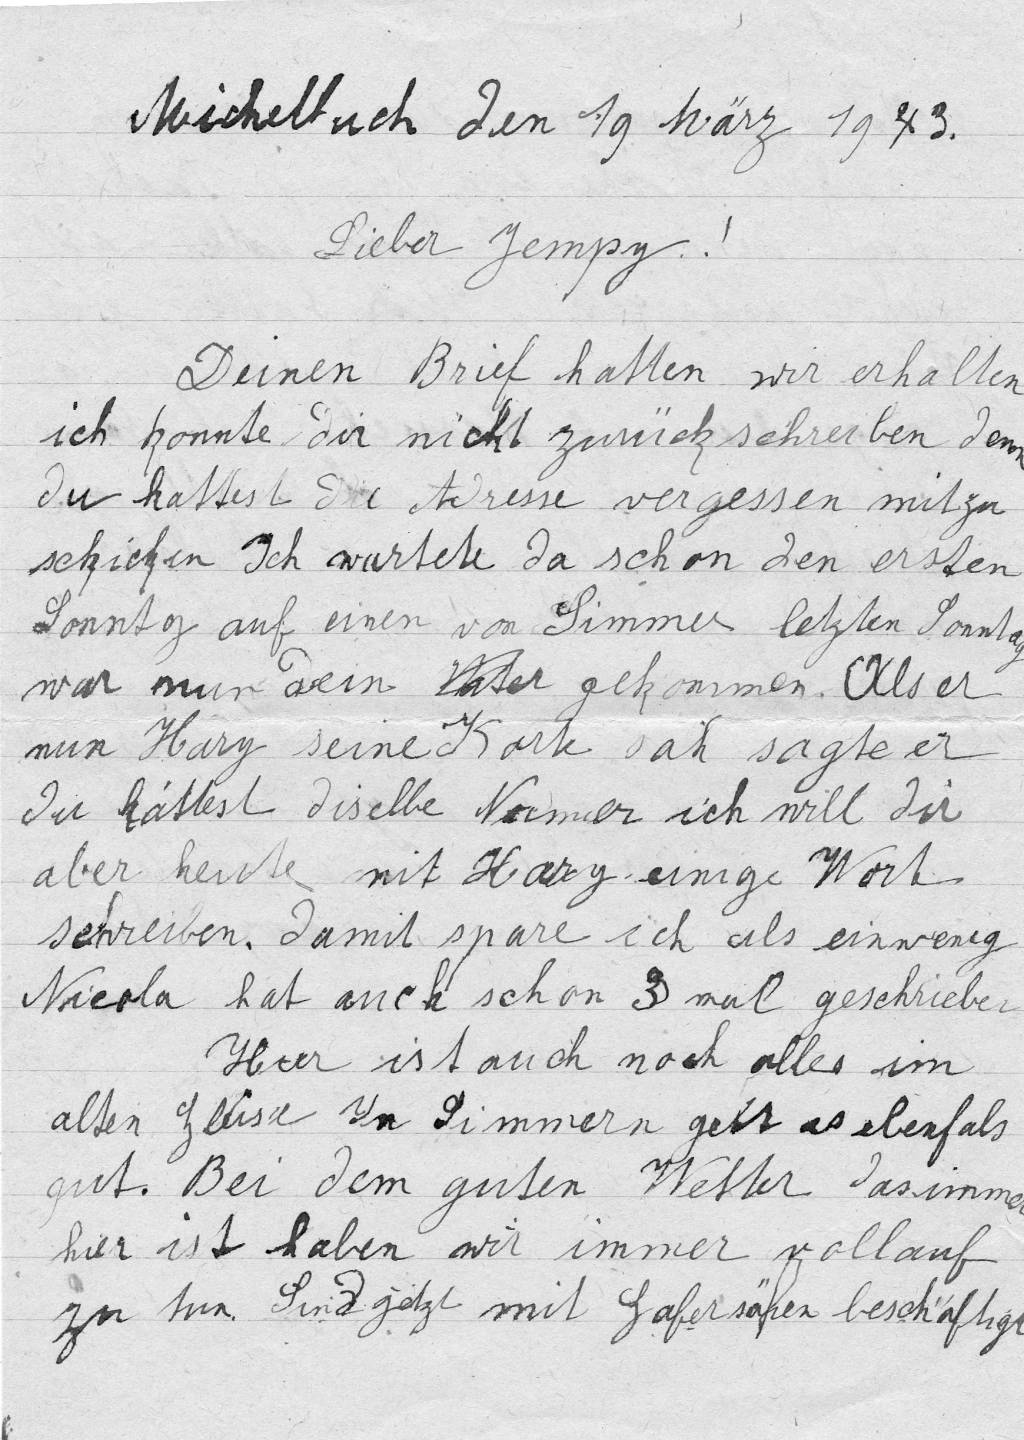 Michelbuch den 19 März 1943.
Lieber Jempy.!
Deinen Brief hatten wir erhalten
ich konnte dir nicht zurückschreiben denn
du hattest die Adresse vergessen mitzu
schicken Ich wartete da schon den ersten
Sonntag auf einen von Simmer letzten Sonntag
war nun dein Vater gekommen. Als er
nun Hary seine Karte sah sagte er
du hättest diselbe Nummer ich will dir
aber heute mit Hary einige Wort
schreiben. damit spare ich als einwenig
Nicola hat auch schon 3 mal geschrieben
Hier ist auch noch alles im
alten In Simmern geht es ebenfals
gut. Bei dem guten Wetter das immer
hier ist haben wir immer vollauf
zu tun. Sind jetzt mit Hafersähen beschäftigt